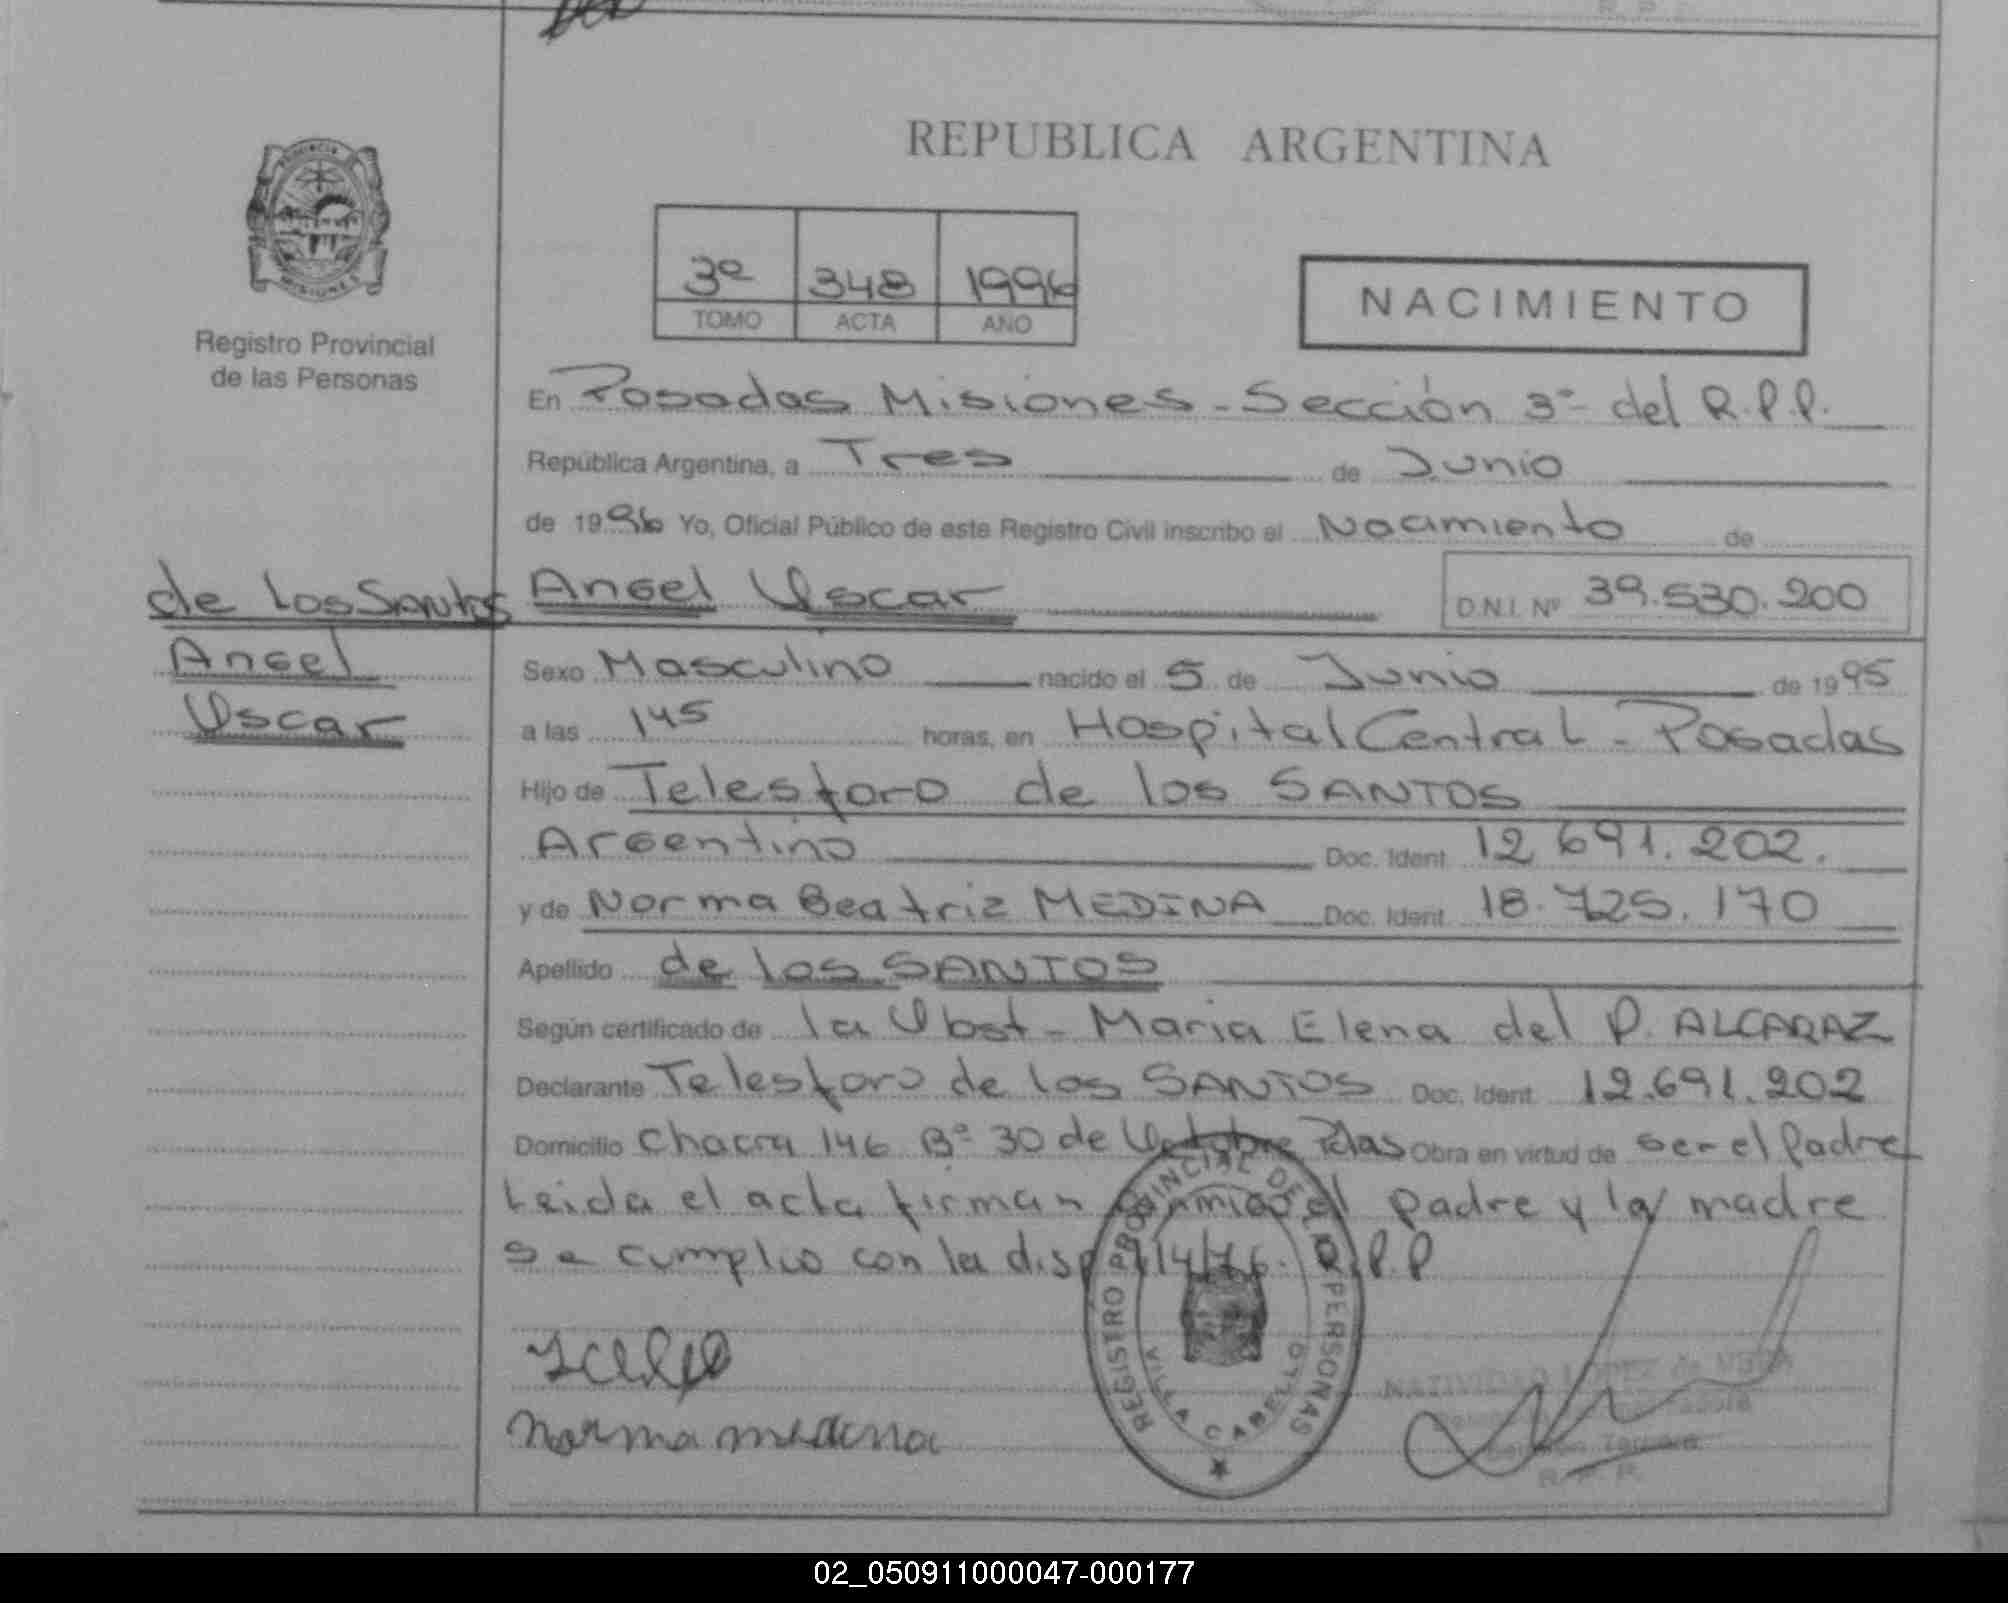 REPUBLICA ARGENTINA
PROVINCIA
MISIONES
Registro Provincial
de las Personas
3º 348 1996
TOMO ACTA AÑO
NACIMIENTO
En Posadas Misiones - Sección 3ª del R.P.P.
República Argentina, a Tres de Junio
de 1996 Yo, Oficial Público de este Registro Civil inscribo el Nacimiento de
de los Santos Angel Oscar D.N.I. Nº 39.530.200
Angel
Oscar
Sexo Masculino nacido el 5 de Junio de 1995
a las 145 horas, en Hospital Central - Posadas
Hijo de Telesforo de los SANTOS
Argentino Doc. Ident 12.691.202.
y de Norma Beatriz MEDINA Doc. Ident. 18.725.170
Apellido de los SANTOS
Según certificado de la Obst - Maria Elena del P. ALCARAZ
Declarante Telesforo de los SANTOS Doc. Ident 12.691.202
Domicilio Chacra 146 Bº 30 de Octubre Pdas Obra en virtud de ser el Padre
Leida el acta firman conmigo el padre y la madre
se cumplio con la disp 14/76. R.P.P
REGISTRO PROVINCIAL DE LAS PERSONAS
VILLA CABELLO
Norma medina
NATIVIDAD LOPEZ de VERA
R. P. P.
02_050911000047-000177